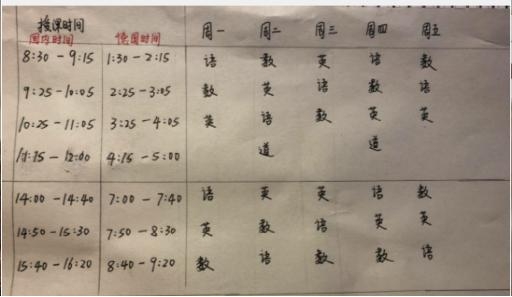 授课时间 周一 周二 周三 周四 周五
国内时间 德国时间
8:30-9:15 1:30-2:15 语 数 英 语 数
9:25-10:05 2:25-3:05 数 英 语 数 语
10:25-11:05 3:25-4:05 英 语 数 英 英
11:15-12:00 4:15-5:00 道 道
14:00-14:40 7:00-7:40 语 英 英 语 数
14:50-15:30 7:50-8:30 英 数 语 英 英
15:40-16:20 8:40-9:20 数 语 数 数 语